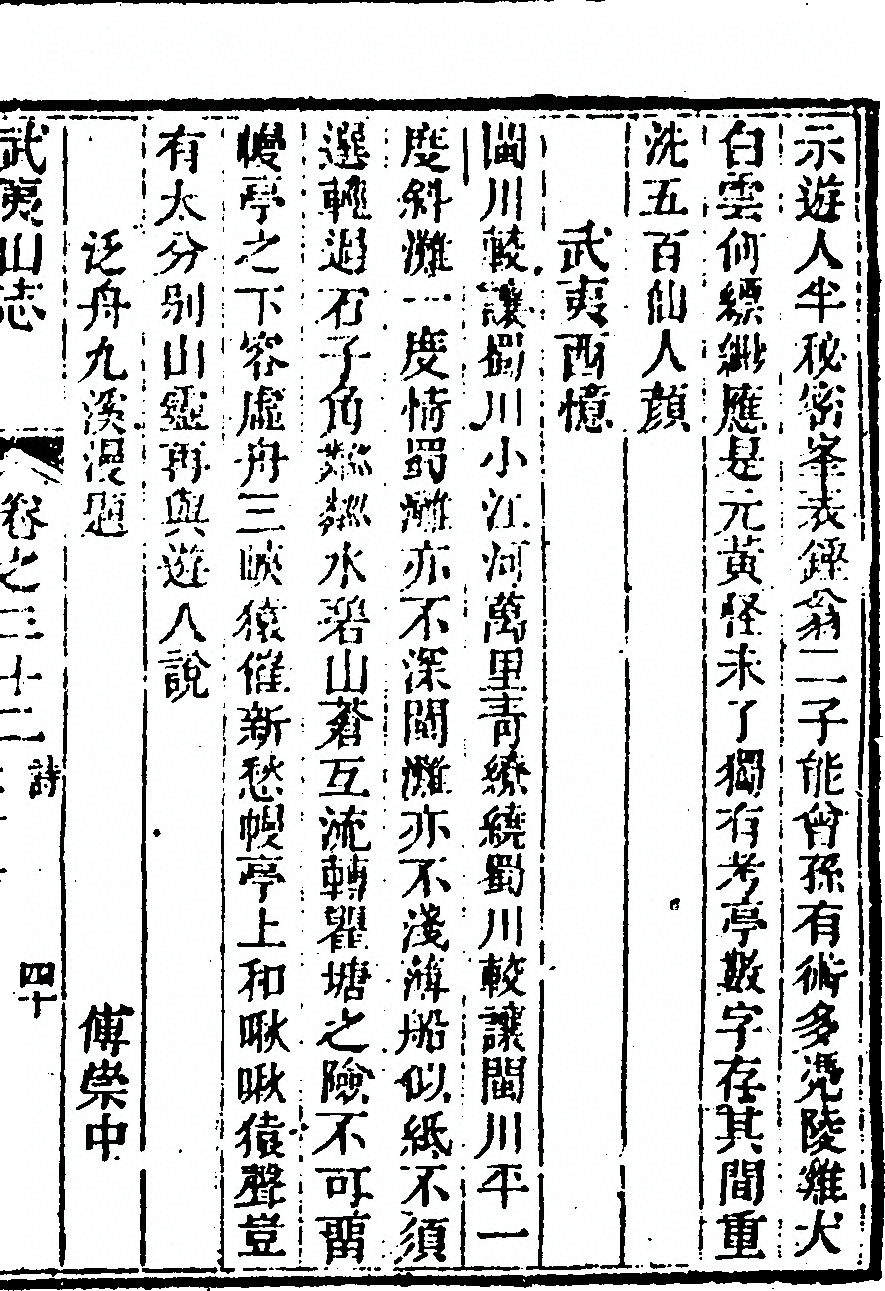 示遊人半秘密峯表鏗翁二子能曾孫有術多凴陵雞犬
白雲何縹緲應是元黃怪未了獨有考亭數字存其間重
洗五百仙人顔
武夷西憶
閩川較讓蜀川小江河萬里青繚繞蜀川較讓閩川平一
度斜灘一度情蜀灘亦不深閩灘亦不淺薄船似紙不須
選輕過石子角粼粼水碧山蒼互流轉瞿塘之險不可畱
幔亭之下容虛舟三峽猿催新愁幔亭上和啾啾猿聲豈
有太分别山靈再與遊人說
泛舟九溪漫題
傅崇中
武夷山志
卷之二十二
詩
四十